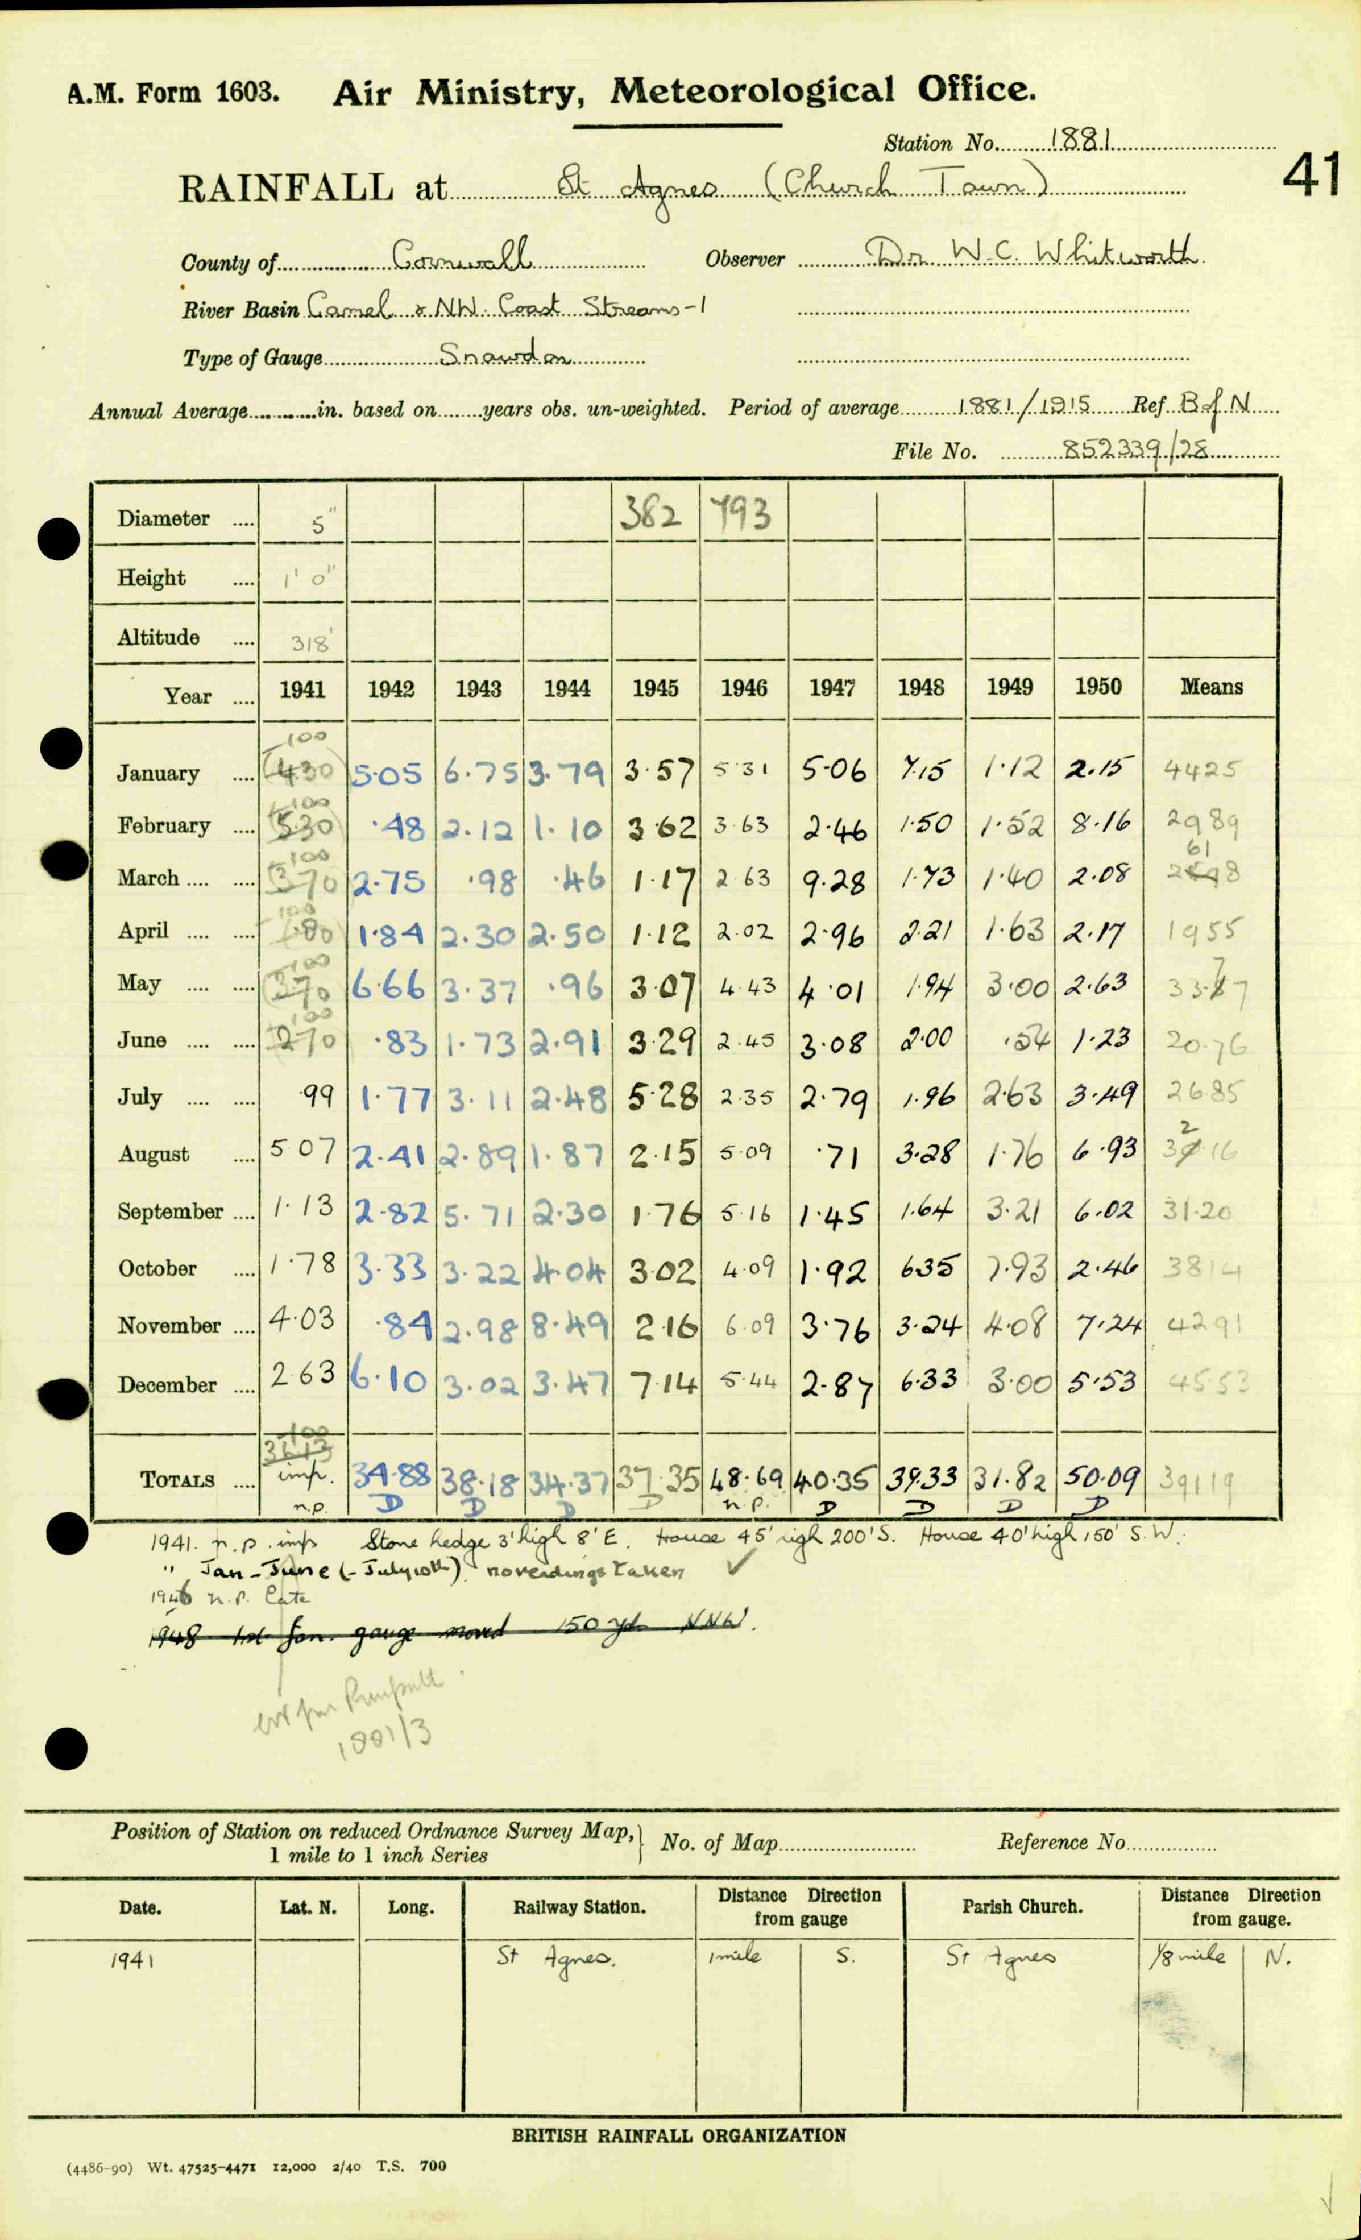 A.M. Form 1603. Air Ministry, Meteorological Office.
Station No. 1881
41
RAINFALL at St Agnes (Church Town)
County of Cornwall Observer Dr. W.C. Whitworth
River Basin Camel & NW. Coast Streams-1
Type of Gauge Snowdon
Annual Average in. based on years obs. un-weighted. Period of average 1881/1915 Ref. B of N
File No. 852339/28
Diameter 5" 382 793
Height 1' 0"
Altitude 318'
Year 1941 1942 1943 1944 1945 1946 1947 1948 1949 1950 Means
-100
January (4.30) 5.05 6.75 3.79 3.57 5.31 5.06 7.15 1.12 2.15 4425
-100
February (5.30) .48 2.12 1.10 3.62 3.63 2.46 1.50 1.52 8.16 2989
-100 61
March (3.70) 2.75 .98 .46 1.17 2.63 9.28 1.73 1.40 2.08 2598
-100
April (.80) 1.84 2.30 2.50 1.12 2.02 2.96 2.21 1.63 2.17 1955
-100 7
May (3.70) 6.66 3.37 .96 3.07 4.43 4.01 1.94 3.00 2.63 33.87
-100
June (2.70) .83 1.73 2.91 3.29 2.45 3.08 2.00 .54 1.23 20.76
July .99 1.77 3.11 2.48 5.28 2.35 2.79 1.96 2.63 3.49 26.85
2
August 5.07 2.41 2.89 1.87 2.15 5.09 .71 3.28 1.76 6.93 39.16
September 1.13 2.82 5.71 2.30 1.76 5.16 1.45 1.64 3.21 6.02 31.20
October 1.78 3.33 3.22 4.04 3.02 4.09 1.92 6.35 7.93 2.46 3814
November 4.03 .84 2.98 8.49 2.16 6.09 3.76 3.24 4.08 7.24 4291
December 2.63 6.10 3.02 3.47 7.14 5.44 2.87 6.33 3.00 5.53 45.53
-100
3613
TOTALS imp. 34.88 38.18 34.37 37.35 48.69 40.35 39.33 31.82 50.09 39119
n.p. D D D D n.p. D D D D
1941. n.p. imp Stone hedge 3' high 8' E. House 45' high 200' S. House 40' high 150' S.W.
" Jan-June (-July 10th) no readings taken ✓
1946 n.p. late
1948 1st Jan. gauge moved 150 yds NNW.
1881/3
Position of Station on reduced Ordnance Survey Map, } No. of Map Reference No.
1 mile to 1 inch Series
Date. Lat. N. Long. Railway Station. Distance Direction from gauge Parish Church. Distance Direction from gauge.
1941 St Agnes. 1 mile S. St Agnes 1/8 mile N.
BRITISH RAINFALL ORGANIZATION
(4486-90) Wt. 47525-4471 12,000 2/40 T.S. 700